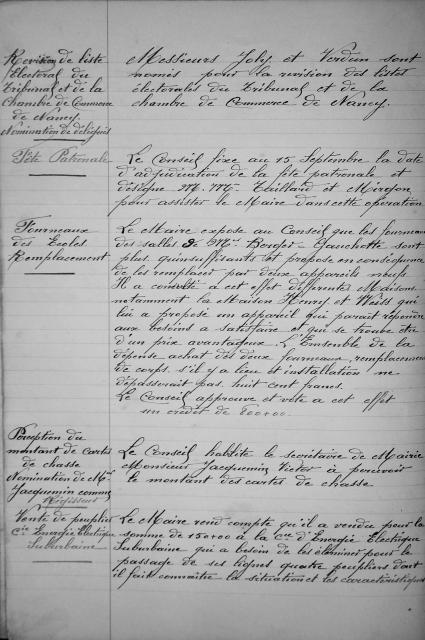 Revision de liste
Electoral du
Tribunal et de la
Chambre de Commerce
de Nancy.
Nomination de délégués
Messieurs Joly et Verdun sont
només pour la revision des listes
électorales du Tribunal et de la
chambre de Commerce de Nancy.
Fête Patronale
Le Conseil fixe au 15 Septembre la date
d'adjudication de la fête patronale et
désigne M. M. Thillard et
pour assister le Maire dans cette opération
Fourneaux
des Ecoles
Remplacement
Le Maire expose au Conseil que les fourneaux
des salles de Berger - Gauchotte sont
plus qu'insuffisants et propose en conséquence
de les remplacer par deux appareils neufs.
Il a consulté à cet effet différentes Maisons
notamment la Maison Henry et Weiss qui
lui a proposé un appareil qui parait répondre
aux besoins à satisfaire et qui se trouve être
d'un prix avantageux. L'Ensemble de la
dépense achat des deux fourneaux, remplacement
de corps s'il y a lieu et installation ne
dépasserait pas huit cent francs.
Le Conseil approuve et vote à cet effet
un crédit de 800.00.
Perception du
montant de Cartes
de chasse
Nomination de Mr
Jacquemin comme
Régisseur
Le Conseil habilite le secrétaire de Mairie
Monsieur Jacquemin Victor à percevoir
le montant des cartes de chasse
Vente de peupliers
Cie Energie Electrique
Suburbaine
Le Maire rend compte qu'il a vendu pour la
somme de 150.00 à la Cie d'Energie Electrique
Suburbaine qui a besoin de les éliminer pour le
passage de ses lignes quatre peupliers dont
il fait connaître la situation et les caractéristiques